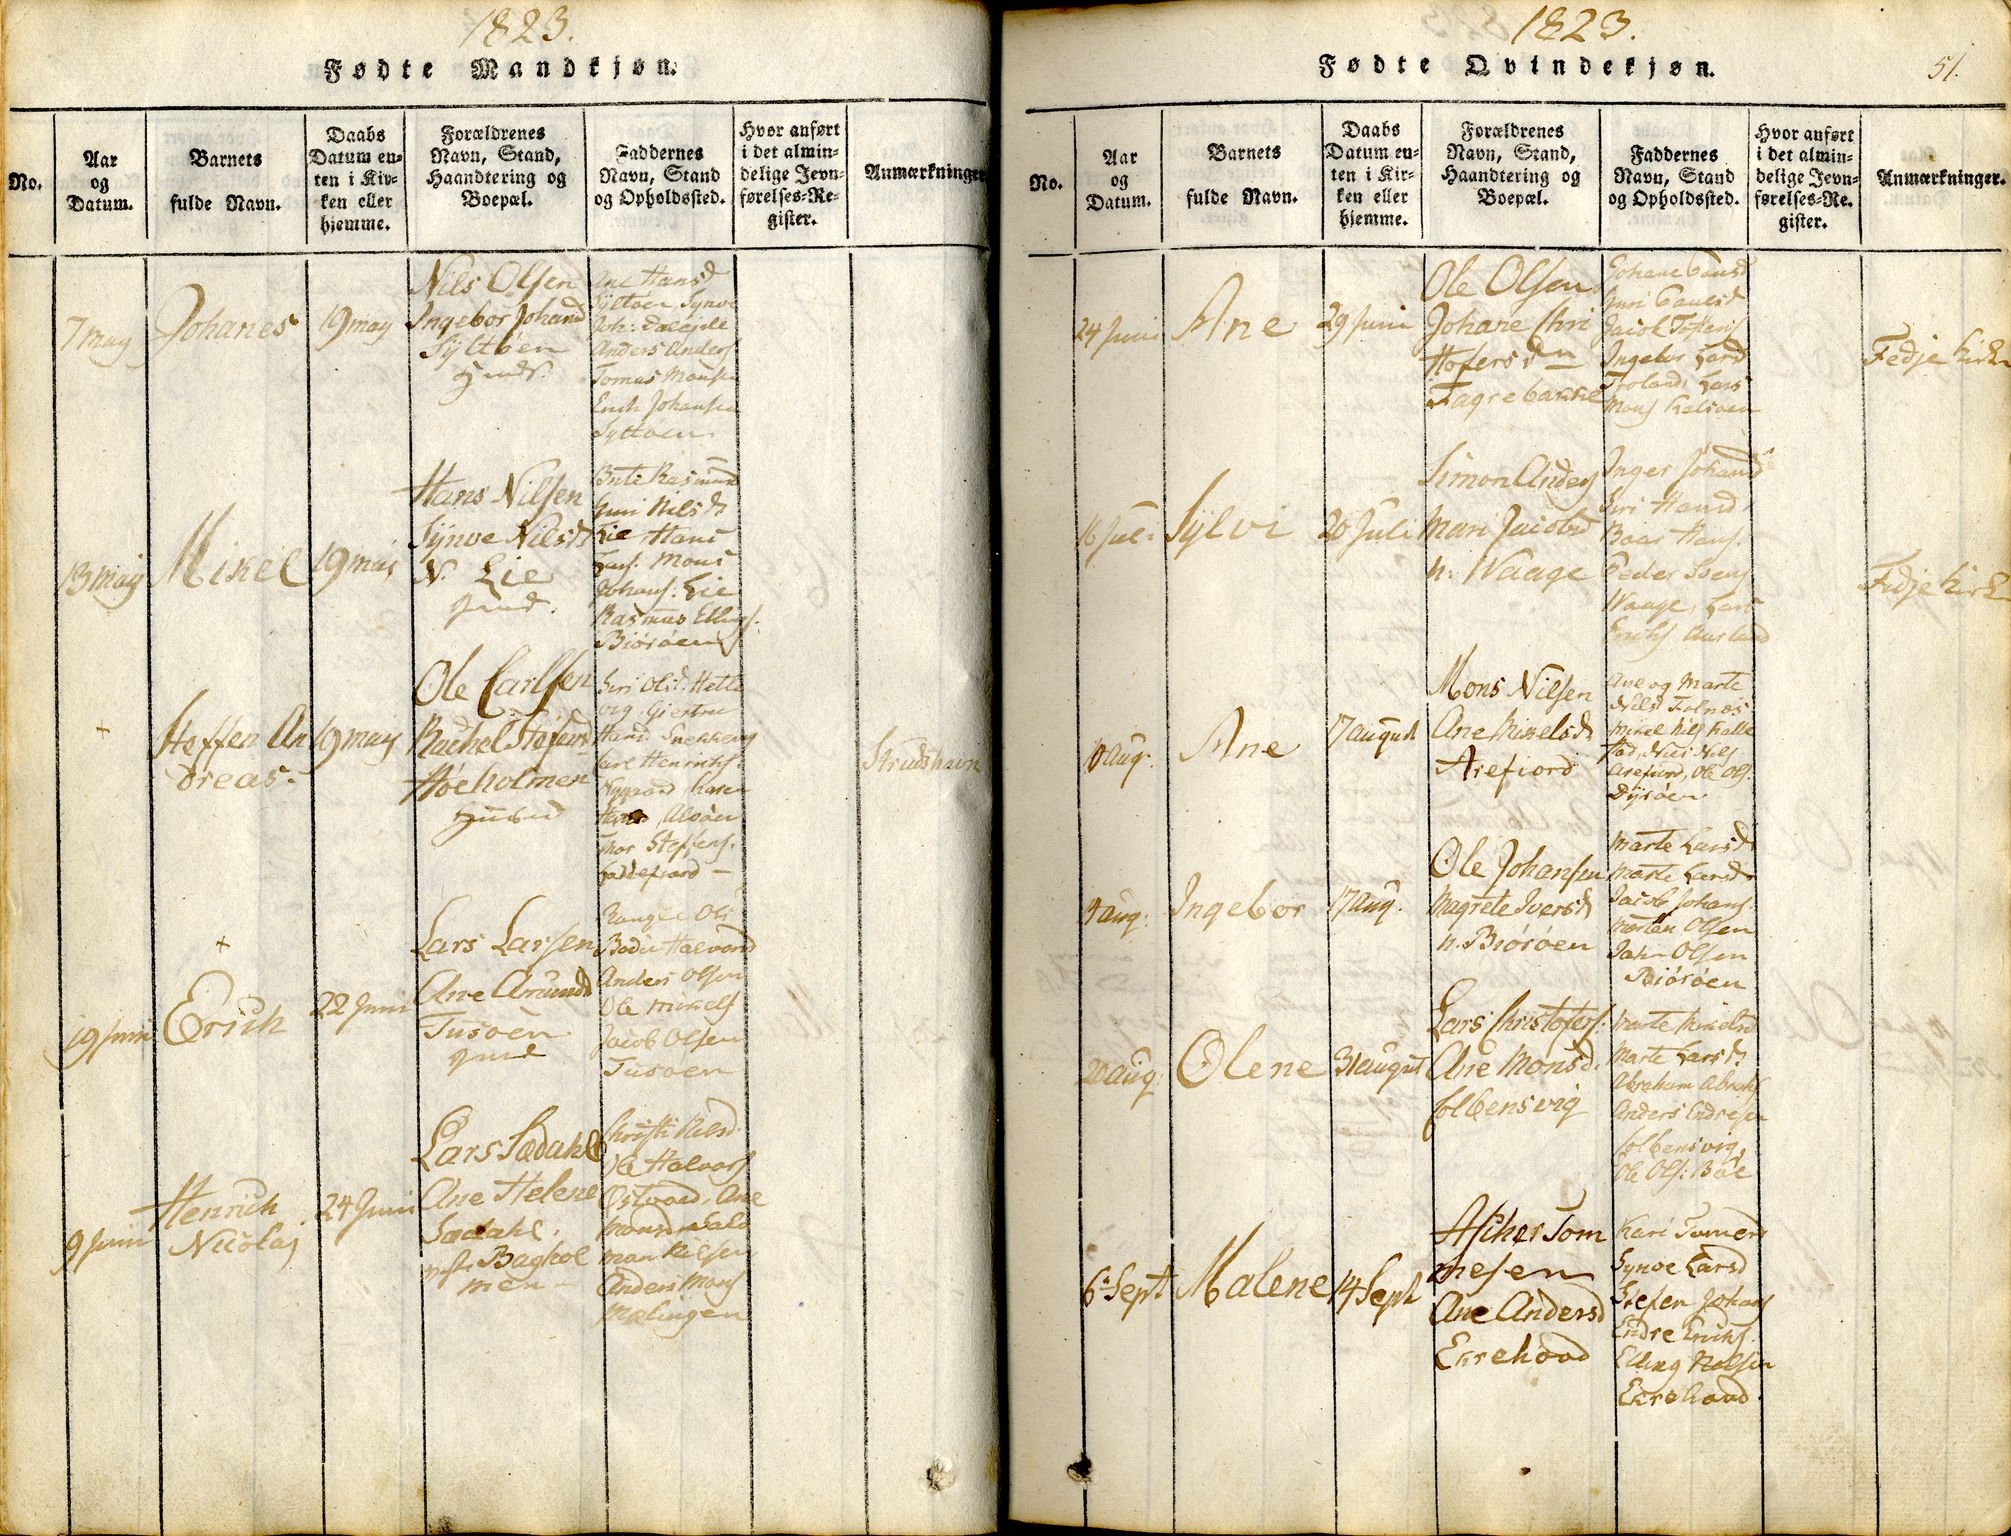 1823.
Fødte Mandkjøn.
No.
Aar
og
Datum.
Barnets
fulde Navn.
Daabs
Datum en=
ten i Kir=
ken eller
hjemme.
Forældrenes
Navn, Stand,
Haandtering og
Boepæl.
Faddernes
Navn, Stand
og Opholdssted.
Hvor anført
i det almin=
delige Jevn=
førelses=Re=
gister.
Anmærkninger
7 may
Johanes
19 may
Nils Olsen
Ingebor Johansd
Syltöen
Ane Hansd
Syltöen, Synve
Anders Anders
Tomas Monsen
Erich Johansen
Syltöen
13 may
Mikel
19 may
Hans Nilsen
Synve Nilsd
N. Lie
Brite Rasmusd
Guri Nilsd
Lie Hans
Hans. Mons
Johans. Lie
Rasmus Ellings.
Biöröen
+
Steffen An
dreas.
19 may
Ole Carlsen
Rachel Stefensd
Höeholmen
Siri Olsd. Hette
vig, Giertru
Carl Henrichs.
Nygaard, Karen
Hans, Alvöen
Thor Steffens.
Haddefiord
Strudshavn
+
19 Juni
Erich
22 Juni
Lars Larsen
Ane Amundsd
Tusöen
Rangle Ols
Bodil Halvord
Anders Olsen
Ole Mikels
Jacob Olsen
Tusöen
9 Juni
Henrich
Nicolaj
24 Juni
Lars Sædahl
Ane Helene
Sædahl.
Baghol
men
Christi Nilsd.
Ole Halvors
Østvold, Ane
Monsd. Salo
mon Nilsen
Anders Mons
Mælingen
1823.
51.
Fødte Qvindekjøn.
No.
Aar
og
Datum.
Barnets
fulde Navn.
Daabs
Datum en=
ten i Kir=
ken eller
hjemme.
Forældrenes
Navn, Stand,
Haandtering og
Boepæl.
Faddernes
Navn, Stand
og Opholdssted.
Hvor anført
i det almin=
delige Jevn=
førelses=Re=
gister.
Anmærkninger.
24 Juni
Ane
29 Juni
Ole Olsen
Johane Chri
stofersd
Fagrebakke
Guri Paulsd
Ingebor Larsd
Troland, Lars
Mons
Fedje Kirke
16 Juli
Sylvi
20 Juli
Simon Anders
Mari Jacobsd
n: Waage
Inger Johansd
Siri Hansd
Baar Hans.
Peder Svens
Waage, Lars
Erichs. Aurland
Fedje Kirke
10 aug.
Ane
17 august
Mons Nilsen
Ane Mikelsd
Arefiord
Ane og Marte
Nilsd Folnæs
Mikel Nils Kalle
stad, Nils Nils
Arefiord, Ole Ols.
Dyröen
4 aug.
Ingebor
17 aug.
Ole Johansen
Magrete Iversd
n. Biöröen
Marte Larsd
Marte Larsd
Jacob Johans.
Morten Olsen
John Olsen
Biöröen
20 aug
Olene
31 august
Lars Christofers:
Ane Monsd.
Colbensvig
Marte Mikelsd
Marte Larsd
Abraham Abrahs
Anders Endresen
Colbensvig,
Ole Ols: Böe
6. Sept
Malene
14 Sept
Ascher Tom
mesen
Ane Andersd
Ekrehovd
Kari Tomesd
Synve Larsd
Stefen Johans
Endre Erichs.
Elling Nilsen
Ekrehovd.